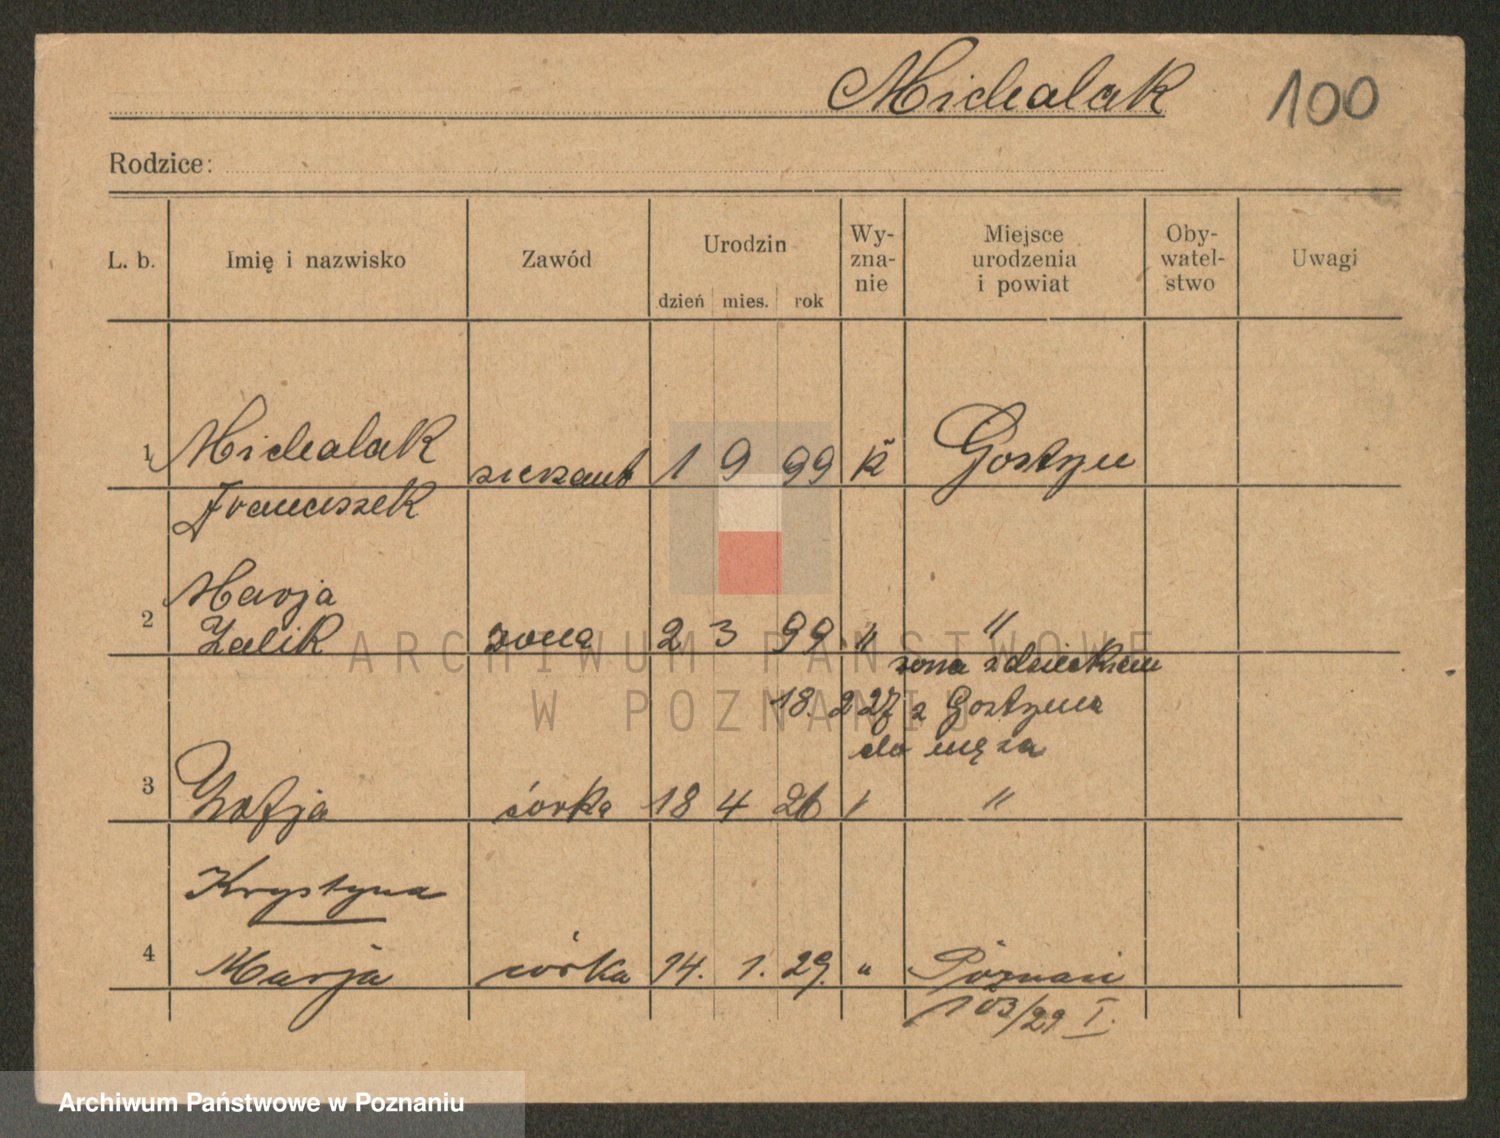 Michalak 100
Rodzice:
L. b. Imię i nazwisko Zawód Urodzin dzień mies. rok Wy- zna- nie Miejsce urodzenia i powiat Oby- watel- stwo Uwagi
1 Michalak sierżant 1 9 99 k Gostyn
Franciszek
Marja
2 Zalik żona 2 3 99 " "
żona z dzieckiem
18. 2 27 z Gostynia
do męża
3 Zofja córka 18 4 26 "
Krystyna
4 Marja córka 14. 1. 29. " Poznań
103/29 I.
ARCHIWUM PAŃSTWOWE
W POZNANIU
Archiwum Państwowe w Poznaniu